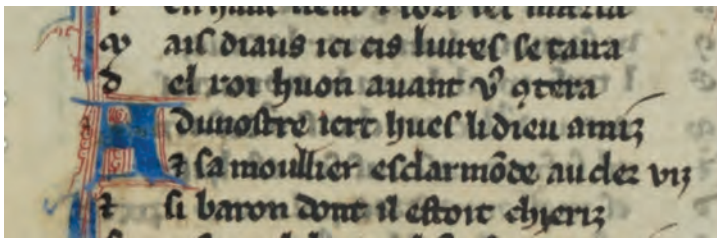 M ais diaus ici cis liures se taira
d el roi huon auant v9 ꝯtera
A Dunostre iert hues li dieu amiz
⁊ sa moullier esclarmōde au cler viz
⁊ si baron dont il estoit chieriz